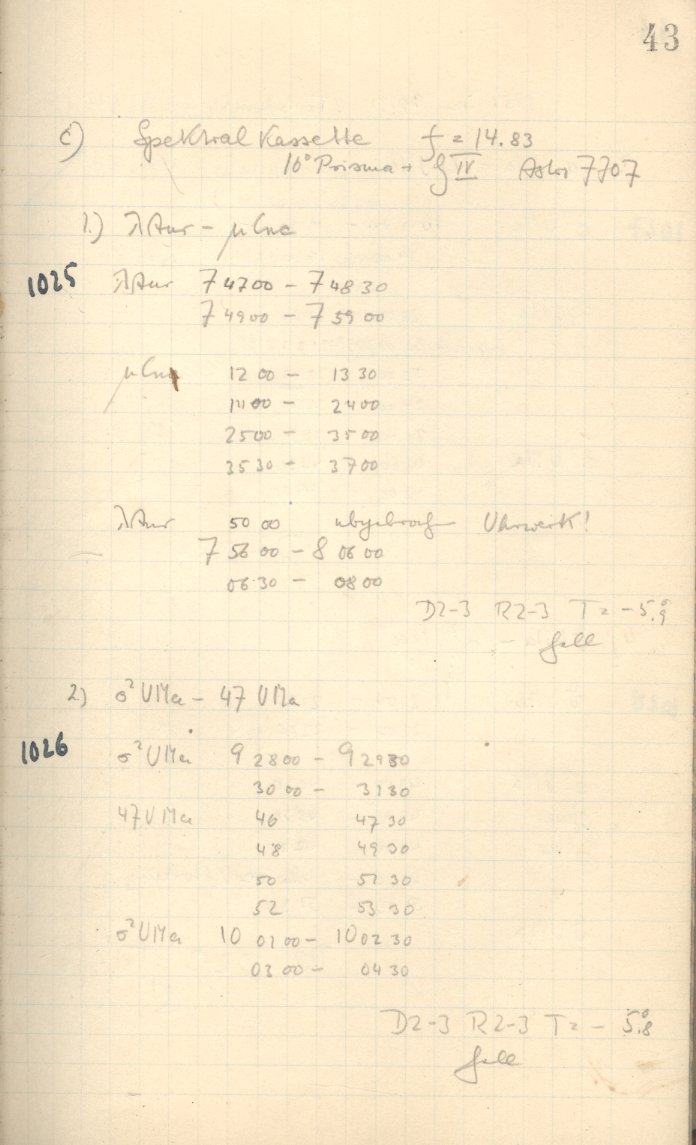 43
c) Spektralkassette f = 14.83
10° Prisma + IV Astro 7707
1.) λ Aur - μ Cnc
1025 λ Aur 7 47 00 - 7 48 30
7 49 00 - 7 59 00
μ Cnc 12 00 - 13 30
14 00 - 24 00
25 00 - 35 00
35 30 - 37 00
λ Aur 50 00 abgebrochen Uhrwerk!
7 56 00 - 8 06 00
06 30 - 08 00
D2-3 R2-3 T = -5.°9
2.) σ² UMa - 47 UMa
1026 σ² UMa 9 28 00 - 9 29 30
30 00 - 31 30
47 UMa 46 47 30
48 49 30
50 51 30
52 53 30
σ² UMa 10 01 00 - 10 02 30
03 00 - 04 30
D2-3 R2-3 T = -5.°8